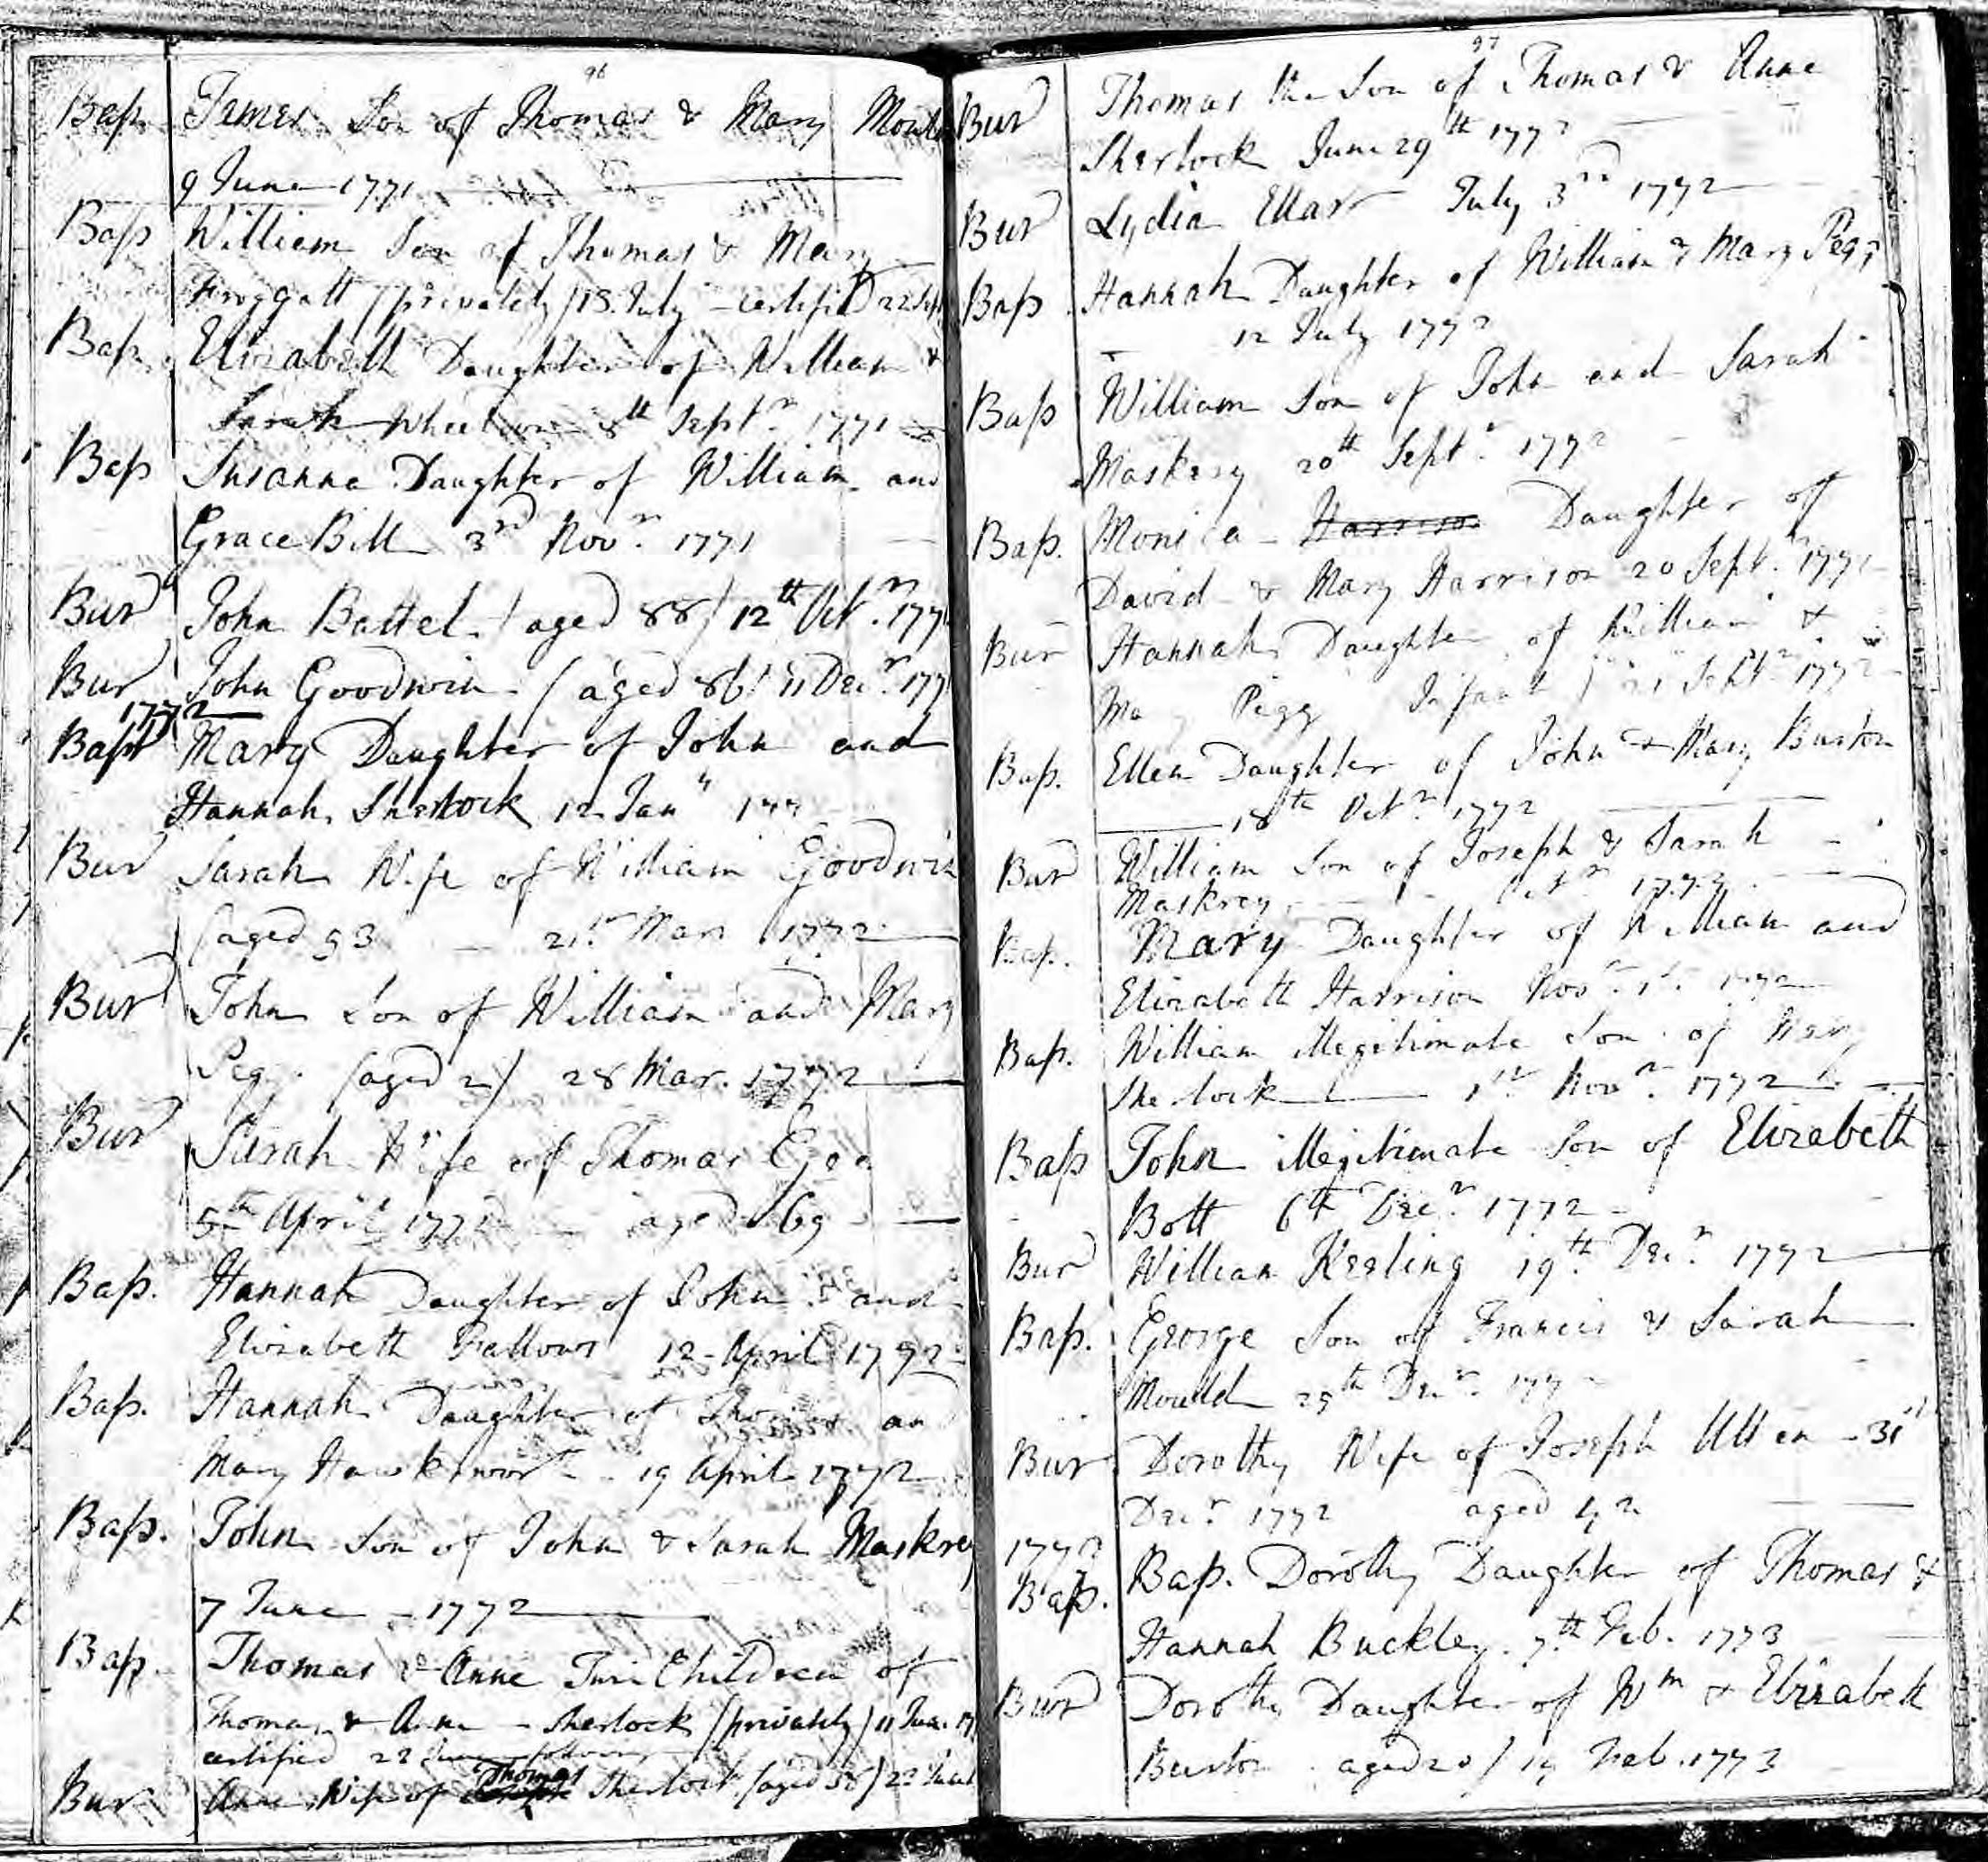 96
Bap. James Son of Thomas & Mary
9 June 1771
Bap William Son of Thomas & Mary
Froggatt (privately) 13 July - certified 22
Bap. Elizabeth Daughter of William &
Sarah 8th Septr. 1771
Bap Susanna Daughter of William and
Grace Bill 3rd Novr. 1771
Bur John Battel (aged 88) 12th Octr.
Bur John Goodwin (aged 86) 11 Decr.
1772
Bapt Mary Daughter of John and
Hannah Sherlock 12 Jany
Bur Sarah Wife of William Goodwin
(aged 53 21st Mar 1772
Bur John Son of William and Mary
Pegg (aged 2) 28 Mar. 1772
Bur Sarah Wife of Thomas
5th April aged 69
Bap. Hannah Daughter of John and
Elizabeth Fallows 12 April 1772
Bap. Hannah Daughter of Thomas an
Mary 19 April 1772
Bap. John Son of John & Sarah Maskrey
7 June - 1772
Bap. Thomas & Anne Twin Children of
Thomas & Anne - Sherlock (privately) 11 June
certified 22 June following
Bur Anne Wife of Thomas Sherlock (aged 38) 22
97
Bur Thomas the Son of Thomas & Anne
Sherlock June 29th 1772
Bur Lydia Ellar July 3rd 1772
Bap Hannah Daughter of William & Mary Pegg
12 July 1772
Bap William Son of John and Sarah
Maskery 20th Septr. 1772
Bap. Monica Harrison Daughter of
David & Mary Harrison 20 Septr. 1772
Bur Hannah Daughter of William &
Pegg Infant 21 Septr. 1772
Bap. Ellen Daughter of John & Mary Burton
18th Octr. 1772
Bur William Son of Joseph & Sarah
Maskrey 1772
Bap. Mary Daughter of William and
Elizabeth Harrison Novr. 1st 1772
Bap. William illegitimate Son of Mary
Sherlock 1st Novr. 1772
Bap John illegitimate Son of Elizabeth
Bott 6th Decr. 1772
Bur William Keeling 19th Decr. 1772
Bap. George Son of Francis & Sarah
Mould 29th Decr.
Bur Dorothy Wife of Joseph Allen 31st
Decr. 1772 aged 42
1773
Bap. Bap. Dorothy Daughter of Thomas &
Hannah Buckley 7th Feb. 1773
Bur Dorothy Daughter of Wm & Elizabeth
Burton aged 20) 14 Feb. 1773